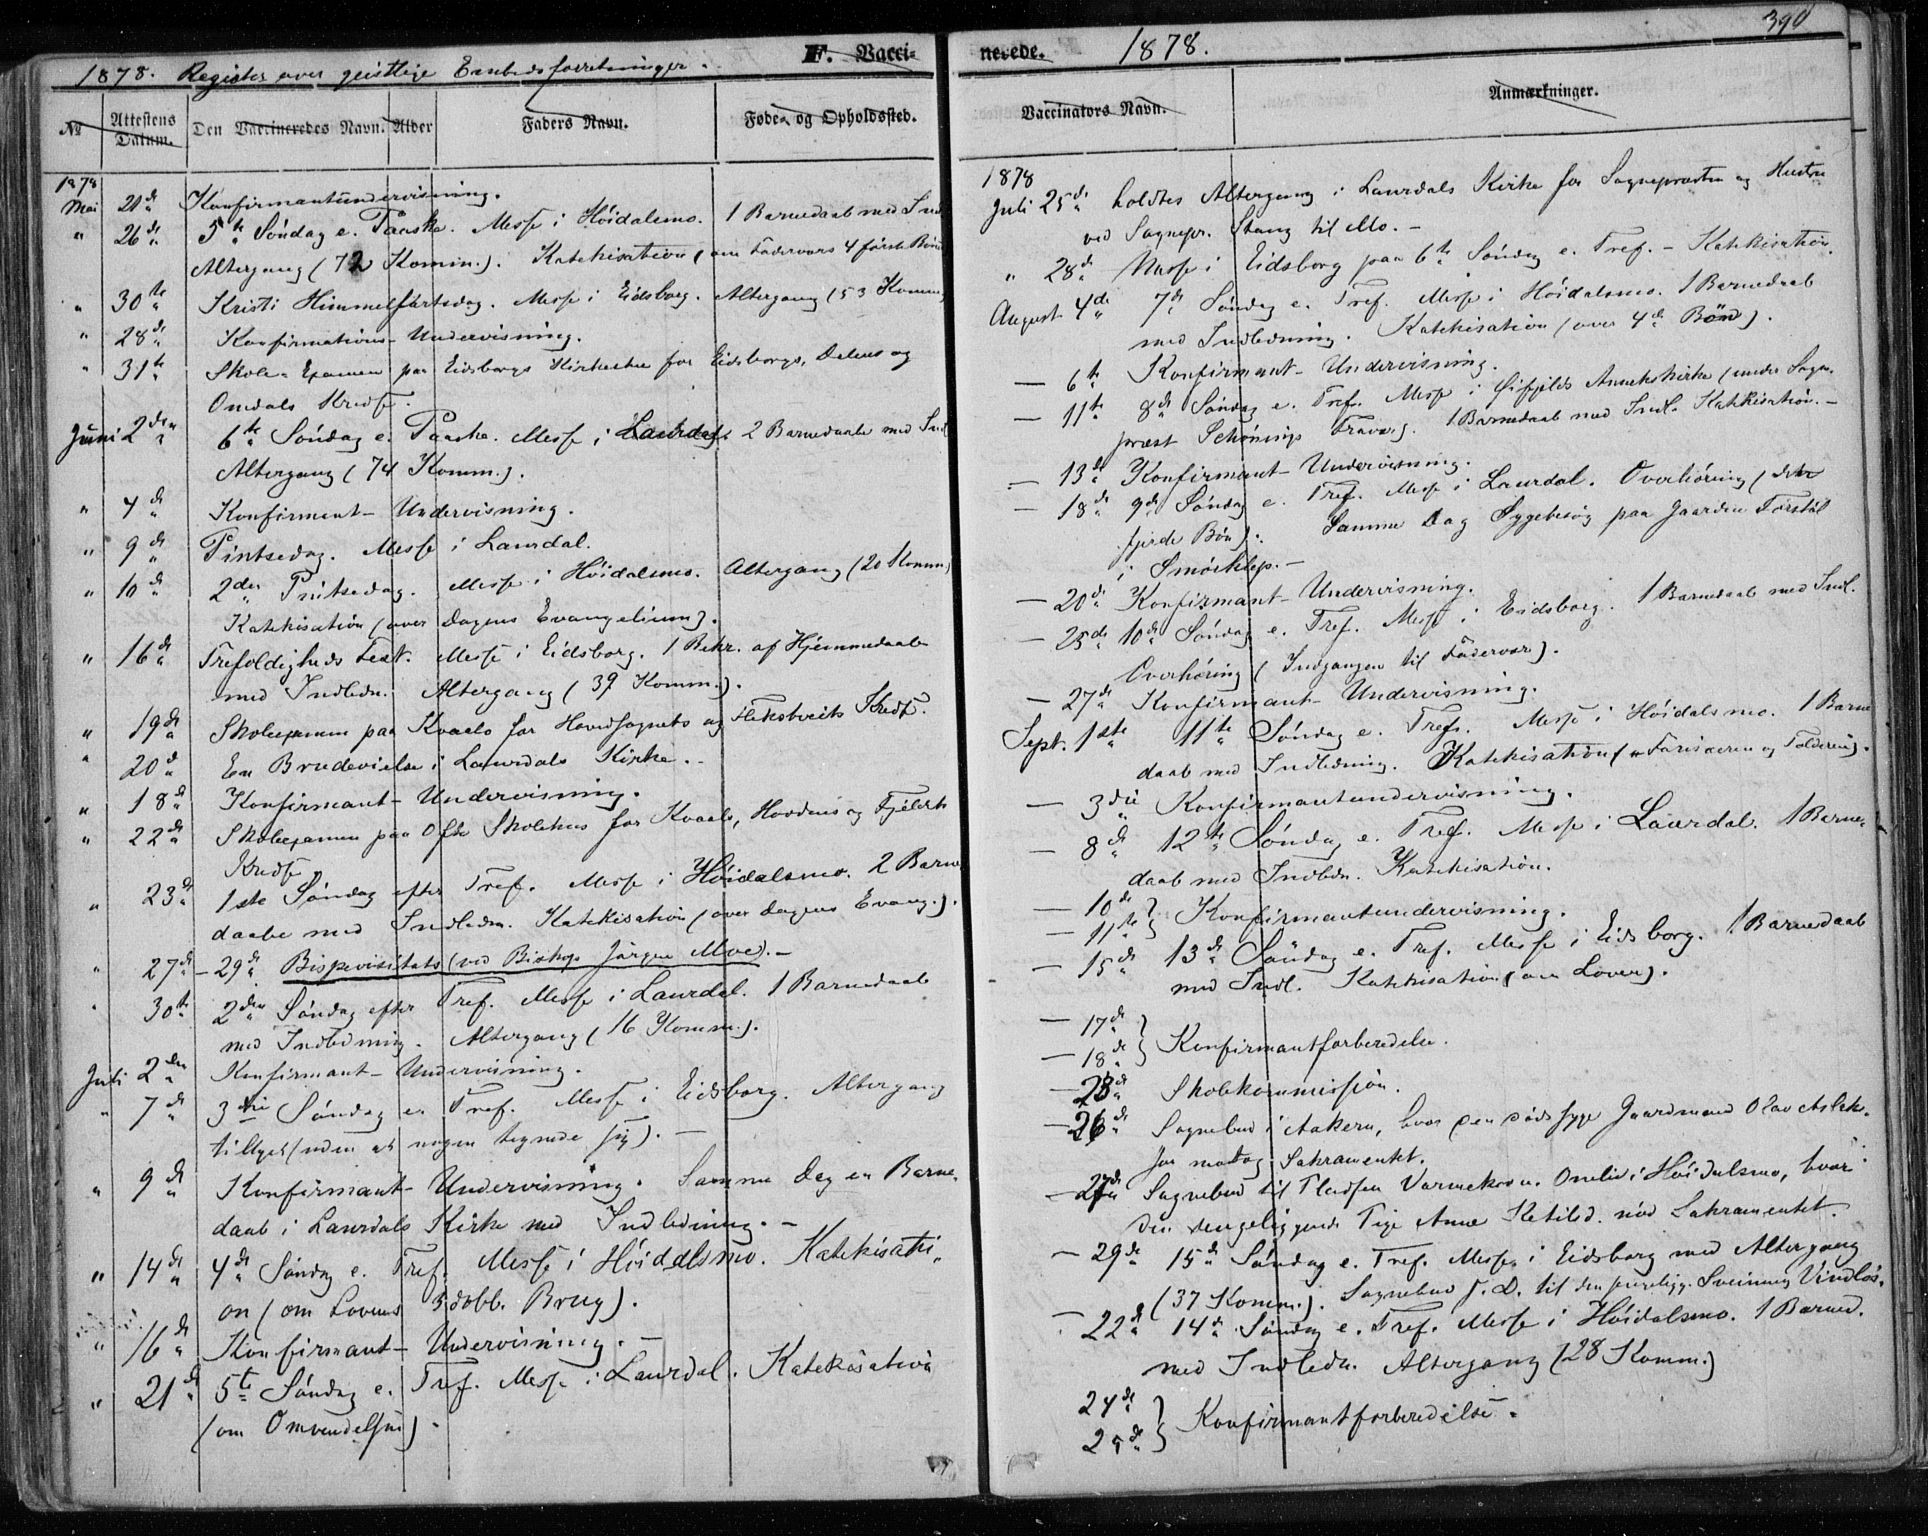 1878. Register over geistlige Embedsforretninger.
F. Vacci-
No
Attestens Datum.
Den Vaccineredes Navn.
Alder
Faders Navn.
Føde- og Opholdssted.
1878
Mai 21de Konfirmantundervisning.
" 26de 5te Søndag e. Paaske. Messe i Høidalsmo. 1 Barnedaab med Indl.
Altergang (72 Komm.). Katekisation (om Fadervors 4 første Bønner
" 30te Kristi Himmelfartsdag. Messe i Eidsborg. Altergang (53 Komm.)
" 28de Konfirmations-Undervisning.
" 31te Skole-Examen paa Eidsborgs for Eidsborgs, Dalens og
Omdals Kredse.
Juni 2den 6te Søndag e. Paaske. Messe i Laurdal. 2 Barnedaab med Indl.
Altergang (74 Komm.).
" 4de Konfirmant-Undervisning.
" 9de Pintsedag. Messe i Laurdal.
" 10de 2den Pintsedag. Messe i Høidalsmo. Altergang (20 Komm.)
Katekisation (over Dagens Evangelium).
" 16de Trefoldigheds Fest. Messe i Eidsborg. 1 Bekr. af Hjemmedaab
med Indledn. Altergang (39 Komm.).
" 19de Skoleexamen paa Kvaale for Hovedsognets og Flekstveits Kredse.
" 20de En Brudevielse i Laurdals Kirke.-
" 18de Konfirmant-Undervisning.
" 22de Skoleexamen paa Ofte Skolehus for Kvaale, Hovdens og
Kredse
" 23de 1ste Søndag efter Tref. Messe i Høidalsmo. 2 Barne-
daabe med Indledn. Katekisation (over Dagens Evang.).
" 27de-29de Bispevisitats (ved Biskop Jørgen Moe).-
" 30te 2den Søndag efter Tref. Messe i Laurdal. 1 Barnedaab
med Indledning. Altergang (16 Komm.).
Juli 2den Konfirmant-Undervisning.
" 7de 3die Søndag e. Tref. Messe i Eidsborg. Altergang
tillyst (uden at nogen tegnede sig).-
" 9de Konfirmant-Undervisning. Samme Dag en Barne-
daab i Laurdals Kirke med Indledning.-
" 14de 4de Søndag e. Tref. Messe i Høidalsmo. Katekisati-
on (om Lovens 3dobb. Brug).
" 16de Konfirmant-Undervisning.-
" 21de 5te Søndag e. Tref. Messe i Laurdal. Katekisation
(om Omvendelsen).
nerede.
1878.
390
Vaccinators Navn.
Anmærkninger.
1878
Juli 25de holdtes Altergang i Laurdals Kirke for Sognepresten og Hustru
ved Sognepr. Stang til Mo.-
" 28de Messe i Eidsborg paa 6te Søndag e. Tref.- Katekisation.
August 4de 7de Søndag e. Tref. Messe i Høidalsmo. 1 Barnedaab
med Indledning. Katekisation (over 4de Bøn).
- 6te Konfirmant-Undervisning.
- 11te 8de Søndag e. Tref. Messe i Øifjelds Annekskirke (under Sogne-
prest Schønings Fravær). 1 Barnedaab med Indl. Katekisation.-
- 13de Konfirmant-Undervisning.
- 18de 9de Søndag e. Tref. Messe i Laurdal. Overhøring (den
fjerde Bøn). Samme Dag Sygebesøg paa Gaarden
i Smørklep.-
- 20de Konfirmant-Undervisning.
- 25de 10de Søndag e. Tref. Messe i Eidsborg. 1 Barnedaab med Indl.
Overhøring (Indgangen til Fadervor).
- 27de Konfirmant-Undervisning.
Sept. 1ste 11te Søndag e. Tref. Messe i Høidalsmo. 1 Barne-
daab med Indledning. Katekisation (Farisæeren og Tolderen).
- 3die Konfirmantundervisning.
- 8de 12te Søndag e. Tref. Messe i Laurdal. 1 Barne-
daab med Indledn. Katekisation.
- 10de
- 11te } Konfirmantundervisning.
- 15de 13de Søndag e. Tref. Messe i Eidsborg. 1 Barnedaab
med Indl. Katekisation (om Loven).
- 17de
- 18de } Konfirmantforberedelse.
- 23de Skolekommission.
- 26de Sognebud i Aakern, hvor den dødssyge Gaardmand Olav Aslak-
sen modtog Sakramentet.
- 27de Sognebud til Pladsen i Høidalsmo, hvor
den sengeliggende Pige Anne Ketilsd. nød Sakramentet.
- 29de 15de Søndag e. Tref. Messe i Eidsborg med Altergang
(37 Komm.). Sognebud s. D. til den sengeligg. Sveinung
- 22de 14de Søndag e. Tref. Messe i Høidalsmo. 1 Barned.
med Indledn. Altergang (28 Komm.)
24de
25de } Konfirmantforberedelse.